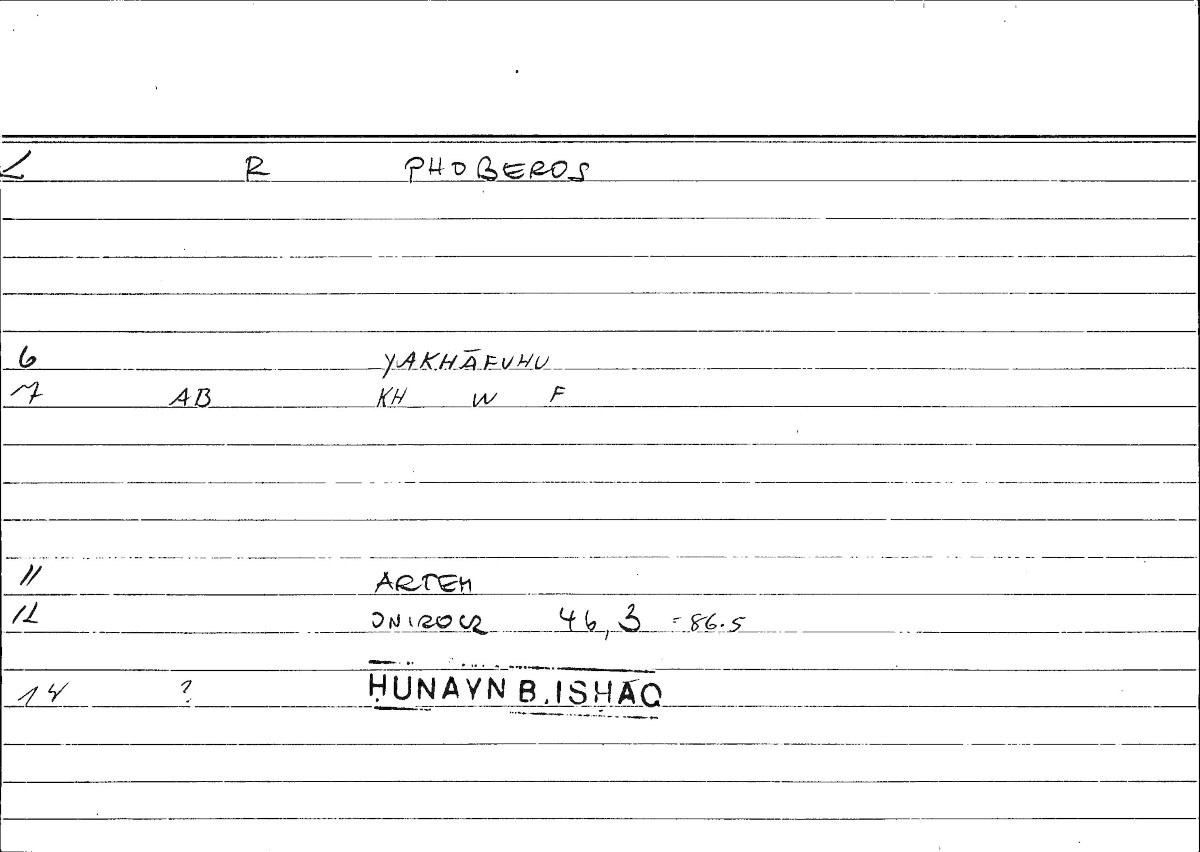 2 R PHOBEROS
6 YAKHĀFUHU
7 AB KH W F
11 ARTEM
12 ONIROCR 46,3 = 86.5
14 ? ḤUNAYN B. ISḤĀQ